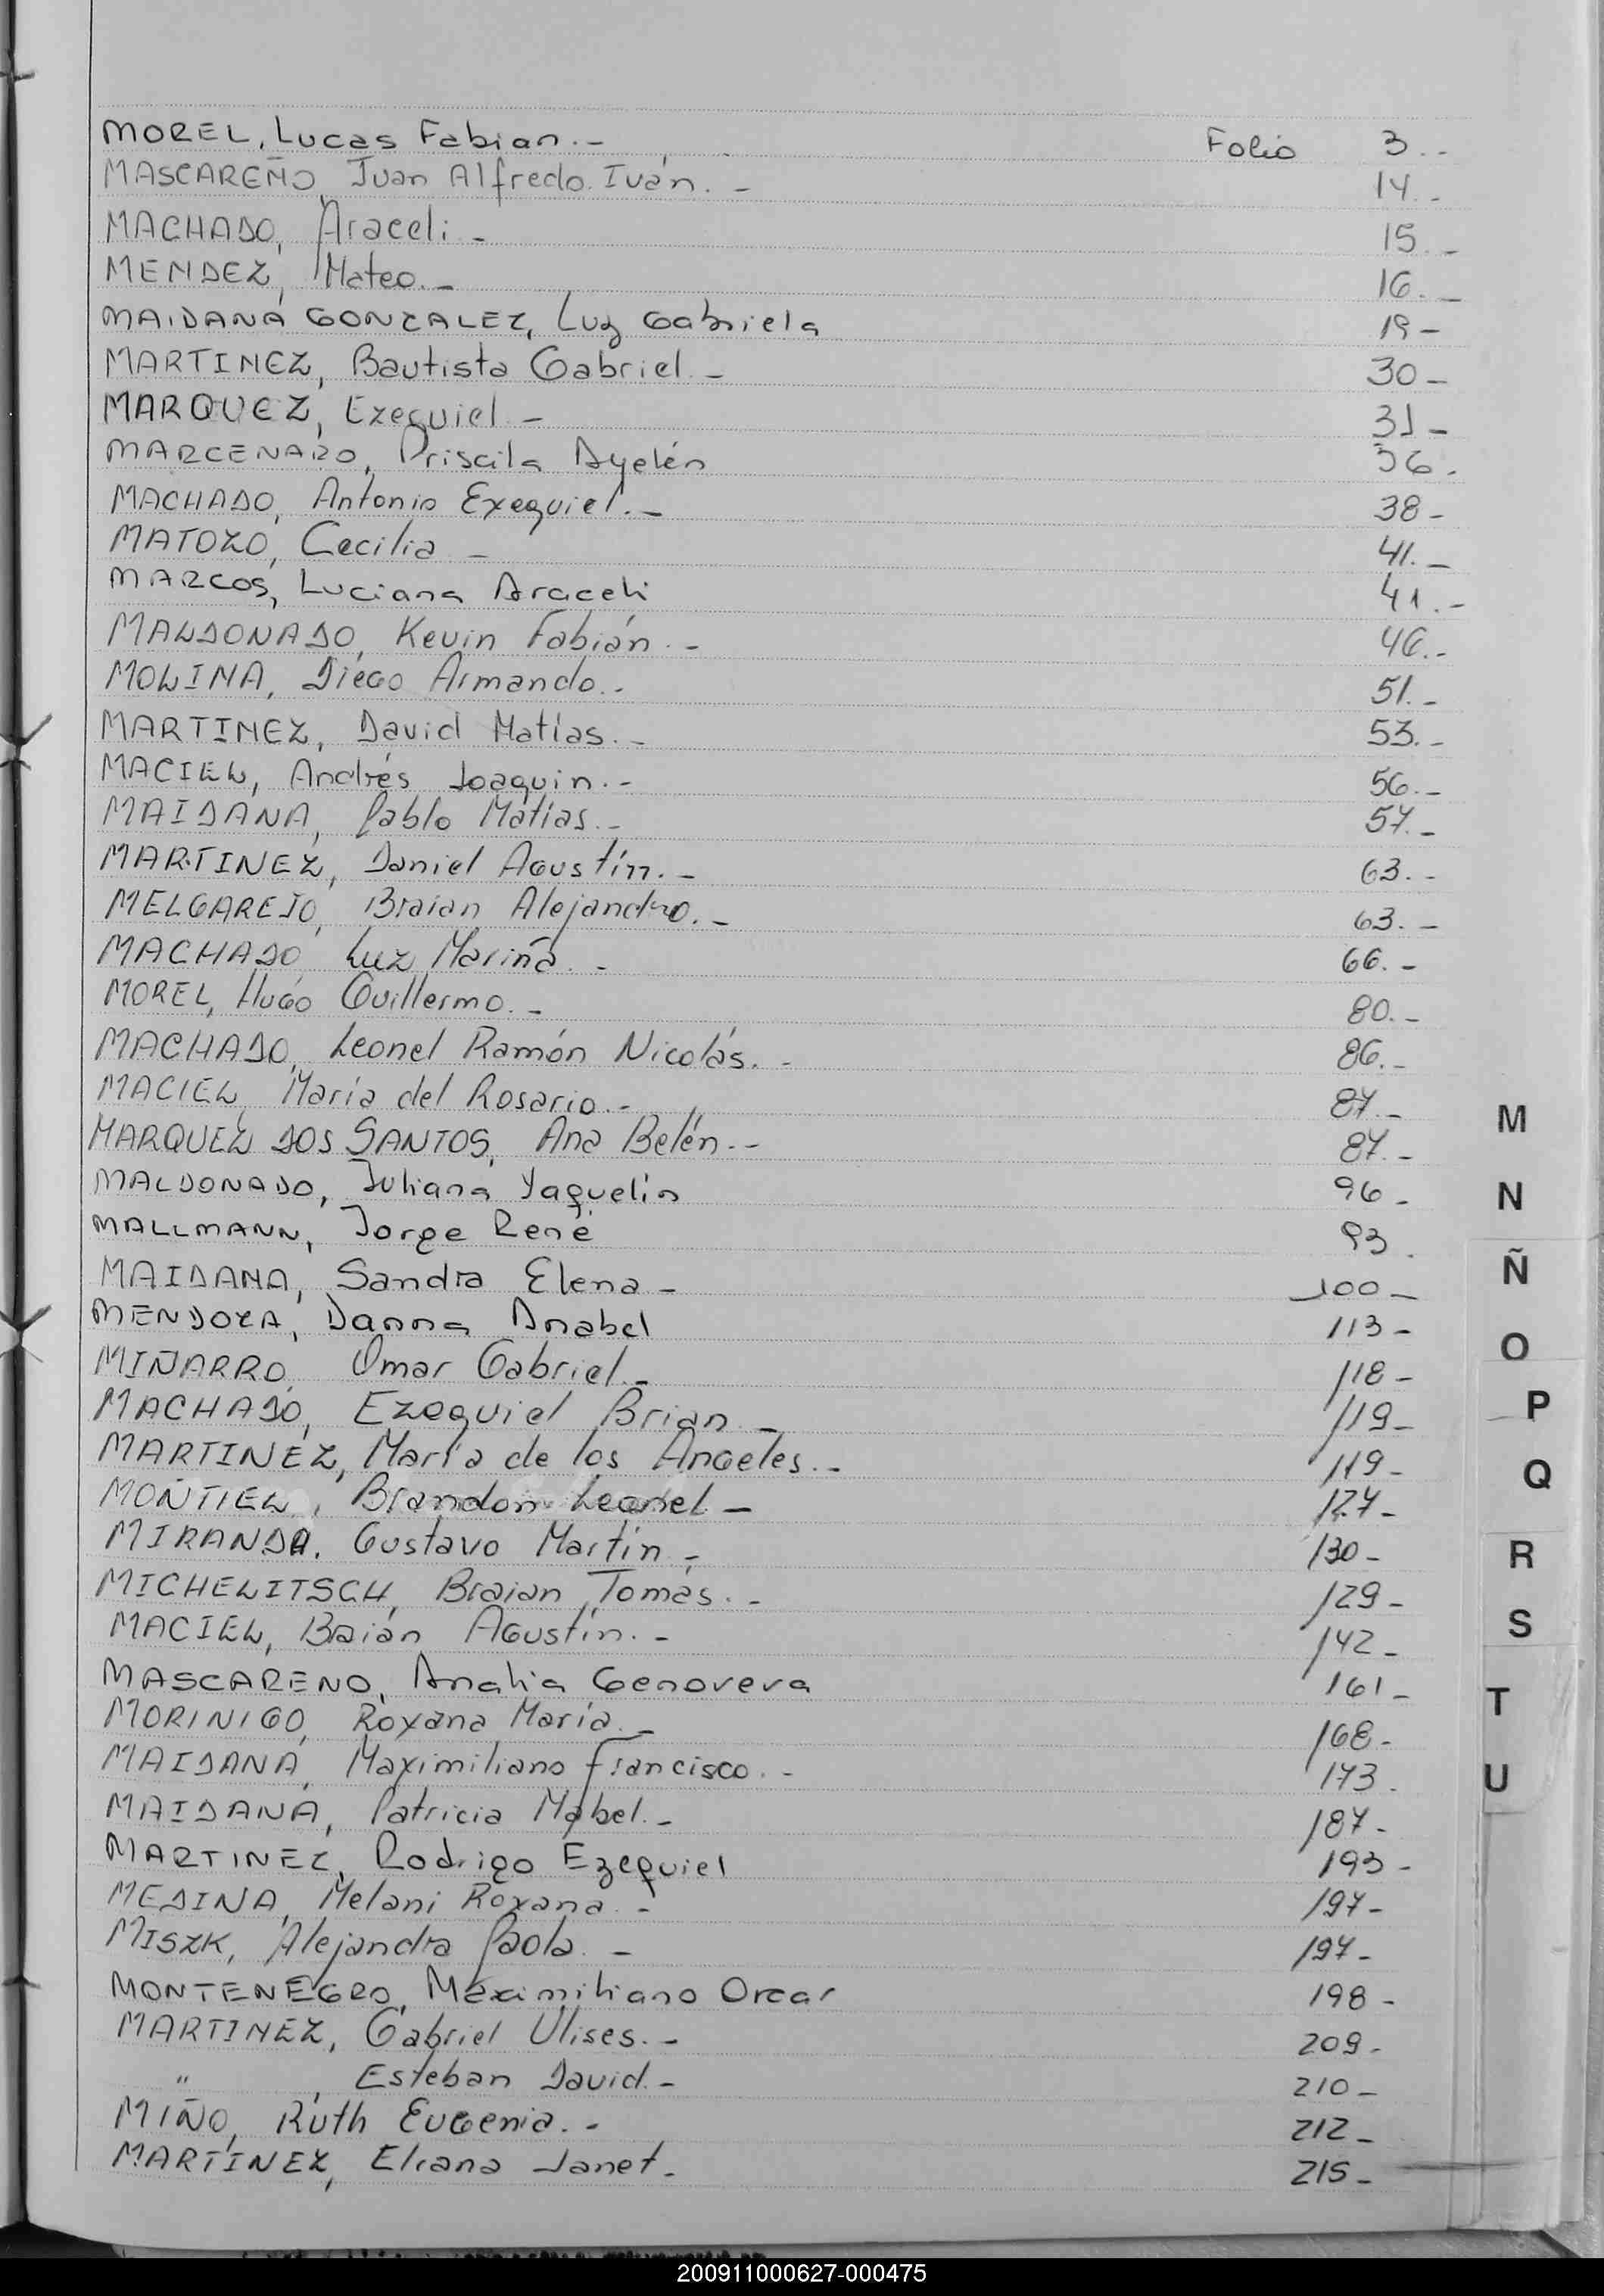 MOREL, Lucas Fabian.- Folio 3.-
MASCAREÑO, Juan Alfredo Iván.- 14.-
MACHADO, Araceli.- 15.-
MENDEZ, Mateo.- 16.-
MAIDANA GONZALEZ, Luz Gabriela 19-
MARTINEZ, Bautista Gabriel.- 30-
MARQUEZ, Ezequiel.- 31-
MARCENARO, Priscila Ayelén 36.
MACHADO, Antonio Exequiel.- 38-
MATOZO, Cecilia - 41.-
MARCOS, Luciana Araceli 41.-
MALDONADO, Kevin Fabián.- 46.-
MOLINA, Diego Armando.- 51.-
MARTINEZ, David Matías.- 53.-
MACIEL, Andrés Joaquin.- 56.-
MAIDANA, Pablo Matías.- 57.-
MARTINEZ, Daniel Agustín.- 63.-
MELGAREJO, Braian Alejandro.- 63.-
MACHADO, Luz Marina.- 66.-
MOREL, Hugo Guillermo.- 80.-
MACHADO, Leonel Ramón Nicolás.- 86.-
MACIEL, María del Rosario.- 87.-
MARQUEZ DOS SANTOS, Ana Belén.- 87.-
MALDONADO, Juliana Yaquelin 96-
MALLMANN, Jorge René 93.
MAIDANA, Sandra Elena - 100-
MENDOZA, Danna Anabel 113-
MIÑARRO, Omar Gabriel.- 118-
MACHADO, Ezequiel Brian.- 119-
MARTINEZ, María de los Angeles.- 119-
MONTIEL, Brandon Leonel - 127-
MIRANDA, Gustavo Martín.- 130-
MICHELITSCH, Braian Tomás.- 129-
MACIEL, Braián Agustín.- 142-
MASCARENO, Analia Genoveva 161-
MORINIGO, Roxana María.- 168-
MAIDANA, Maximiliano Francisco.- 173.
MAIDANA, Patricia Mabel.- 187-
MARTINEZ, Rodrigo Ezequiel 193-
MEDINA, Melani Roxana.- 197-
MISZK, Alejandra Paola.- 197-
MONTENEGRO, Maximiliano Orcar 198-
MARTINEZ, Gabriel Ulises.- 209-
" , Esteban David.- 210-
MIÑO, Ruth Eugenia.- 212-
MARTINEZ, Eliana Janet.- 215-
M
N
Ñ
O
P
Q
R
S
T
U
200911000627-000475